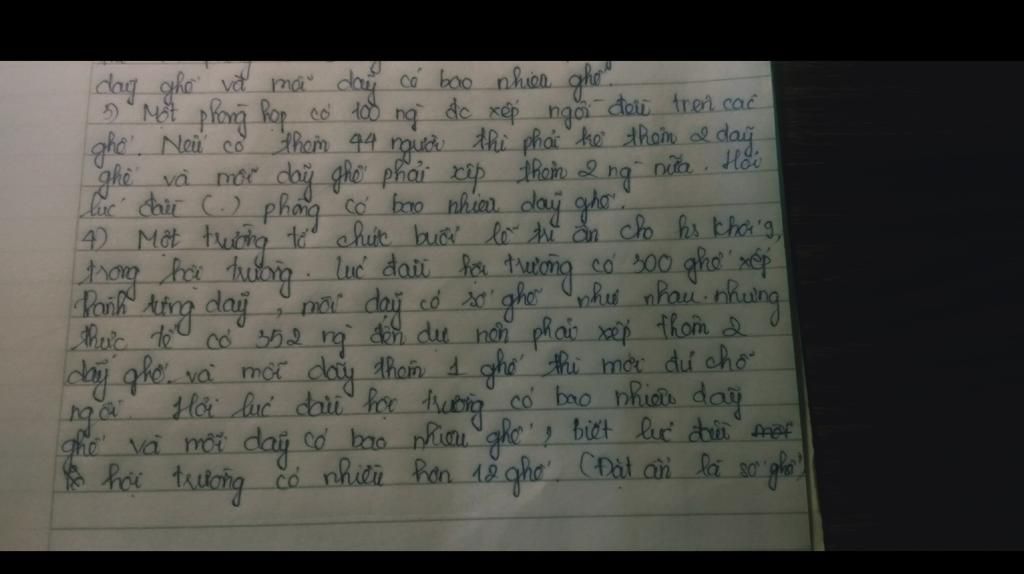 dãy ghế và mỗi dãy có bao nhiêu ghế
3) Một phòng họp có 100 ng đc xếp ngồi đều trên các
ghế. Nếu có thêm 44 người thì phải kê thêm 2 dãy
ghế và mỗi dãy ghế phải xếp thêm 2 ng nữa. Hỏi
lúc đầu (.) phòng có bao nhiêu dãy ghế.
4) Một trường tổ chức buổi lễ tri ân cho hs khối 9,
trong hội trường. lúc đầu hội trường có 300 ghế xếp
thành từng dãy, mỗi dãy có số ghế như nhau. nhưng
thực tế có 352 ng đến dự nên phải xếp thêm 2
dãy ghế. và mỗi dãy thêm 1 ghế thì mới đủ chỗ
ngồi. Hỏi lúc đầu hội trường có bao nhiêu dãy
ghế và mỗi dãy có bao nhiêu ghế, biết lúc đầu
hội trường có nhiều hơn 12 ghế. (Đặt ẩn là số ghế)